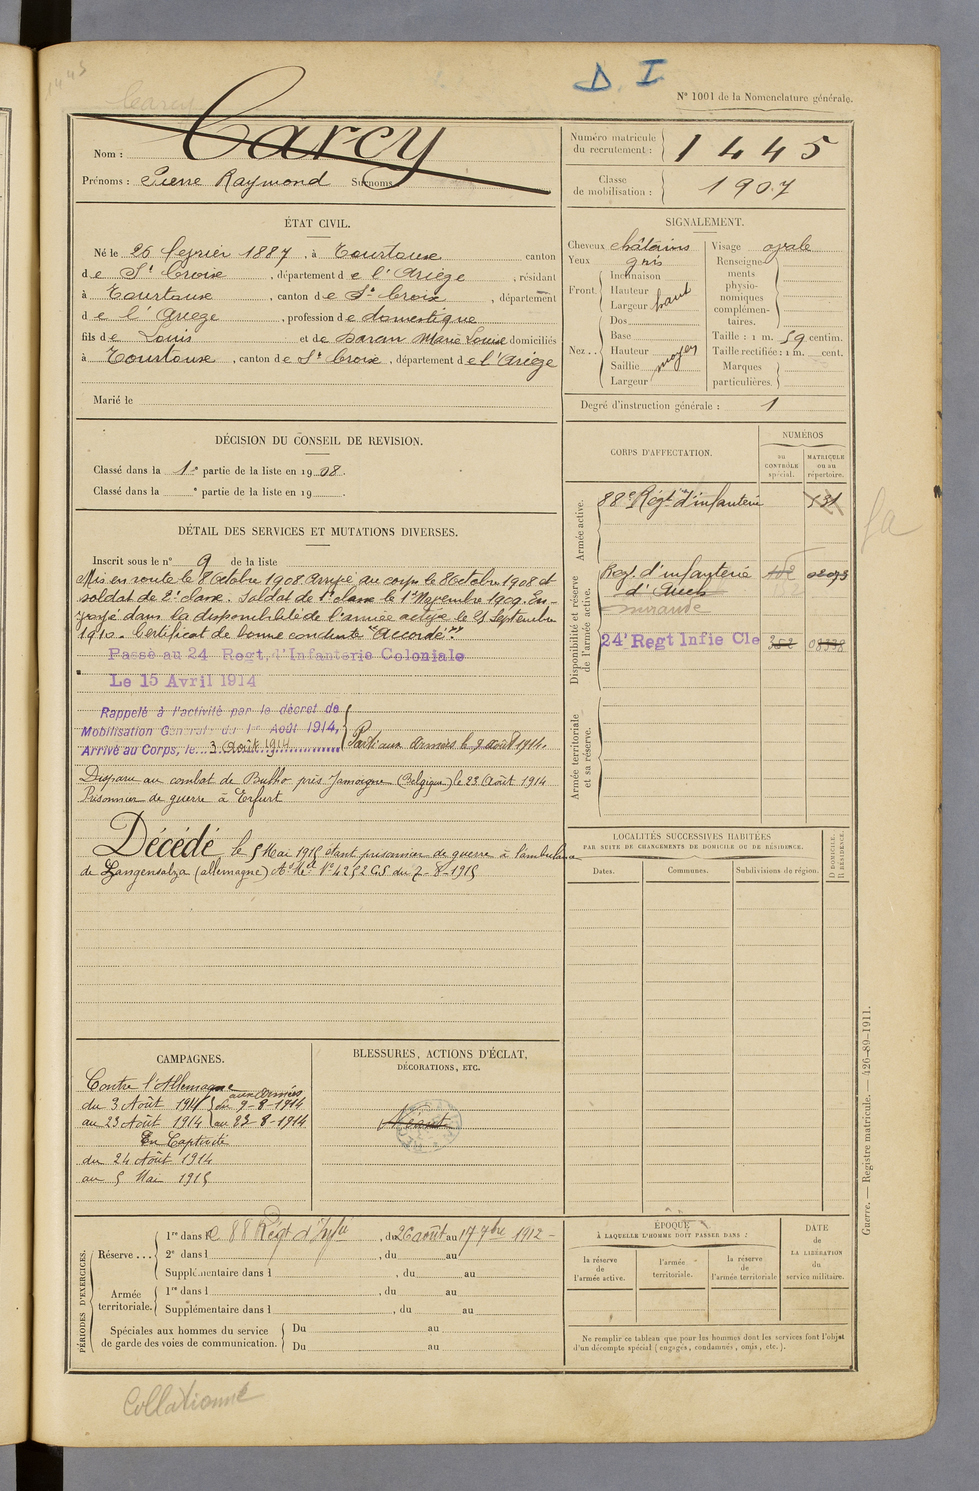 1445
Carcy
D. I
N° 1001 de la Nomenclature générale.
Nom : Carcy
Prénoms : Pierre Raymond Surnoms
Numéro matricule du recrutement : 1445
Classe de mobilisation : 1907
ÉTAT CIVIL.
Né le 26 février 1887, à Tourtouse canton
de St Croix, département de l'Ariège, résidant
à Tourtouse, canton de Ste Croix, département
de l'Ariège, profession de domestique
fils de Louis et de Daran Marie Louise domiciliés
à Tourtouse, canton de St Croix, département de l'Ariège
Marié le
SIGNALEMENT.
Cheveux châtains
Yeux gris
Front. Inclinaison
Hauteur
Largeur haut
Nez.. Dos
Base
Hauteur moyen
Saillie
Largeur
Visage ovale
Renseignements physionomiques complémentaires.
Taille : 1 m. 59 centim.
Taille rectifiée : 1 m. cent.
Marques particulières.
Degré d'instruction générale : 1
DÉCISION DU CONSEIL DE REVISION.
Classé dans la 1e partie de la liste en 1908.
Classé dans la e partie de la liste en 19
CORPS D'AFFECTATION.
NUMÉROS
au CONTRÔLE spécial.
MATRICULE ou au répertoire.
Armée active.
88e Régt d'infanterie
Disponibilité et réserve de l'armée active.
Regt d'infanterie
d'Auch
Mirande
24e Regt Infie Cle 352 08338
Armée territoriale et sa réserve.
DÉTAIL DES SERVICES ET MUTATIONS DIVERSES.
Inscrit sous le n° 9 de la liste
Mis en route le 8 Octobre 1908. Arrivé au corps le 8 Octobre 1908 et
soldat de 2e classe. Soldat de 1e classe le 1er Novembre 1909. En-
voyé dans la disponibilité de l'armée active le 25 Septembre
1910. Certificat de bonne conduite "Accordé".
Passé au 24 Regt. d'Infanterie Coloniale
Le 15 Avril 1914
Rappelé à l'activité par le décret de
Mobilisation Générale du 1er Août 1914,
Arrivé au Corps, le 3 Août 1914
Parti aux Armées le 9 août 1914.
Disparu au combat de près Jamoigne (Belgique) le 23 Août 1914
Prisonnier de guerre à Erfurt
Décédé le 5 Mai 1915 étant prisonnier de guerre à l'ambulance
de Langensalza (allemagne) N° 4252 GS du 7-8-1915
LOCALITÉS SUCCESSIVES HABITÉES
PAR SUITE DE CHANGEMENTS DE DOMICILE OU DE RÉSIDENCE.
Dates.
Communes.
Subdivisions de région.
D DOMICILE. R RÉSIDENCE.
CAMPAGNES.
Contre l'Allemagne
aux Armées
du 3 Août 1914 du 9-8-1914
au 23 Août 1914 au 23-8-1914
En Captivité
du 24 Août 1914
au 5 Mai 1915
BLESSURES, ACTIONS D'ÉCLAT,
DÉCORATIONS, ETC.
Néant
PÉRIODES D'EXERCICES.
Réserve ... 1re dans le 88 Régt d'Infie, du 26 août au 17 7bre 1912 -
2e dans l , du au
Supplémentaire dans l , du au
Armée territoriale. 1re dans l , du au
Supplémentaire dans l , du au
Spéciales aux hommes du service de garde des voies de communication. Du au
Du au
ÉPOQUE
À LAQUELLE L'HOMME DOIT PASSER DANS :
la réserve de l'armée active.
l'armée territoriale.
la réserve de l'armée territoriale
DATE DE LA LIBÉRATION du service militaire.
Ne remplir ce tableau que pour les hommes dont les services font l'objet
d'un décompte spécial (engagés, condamnés, omis, etc.).
Guerre. — Registre matricule. — 426-89-1911.
Collationné